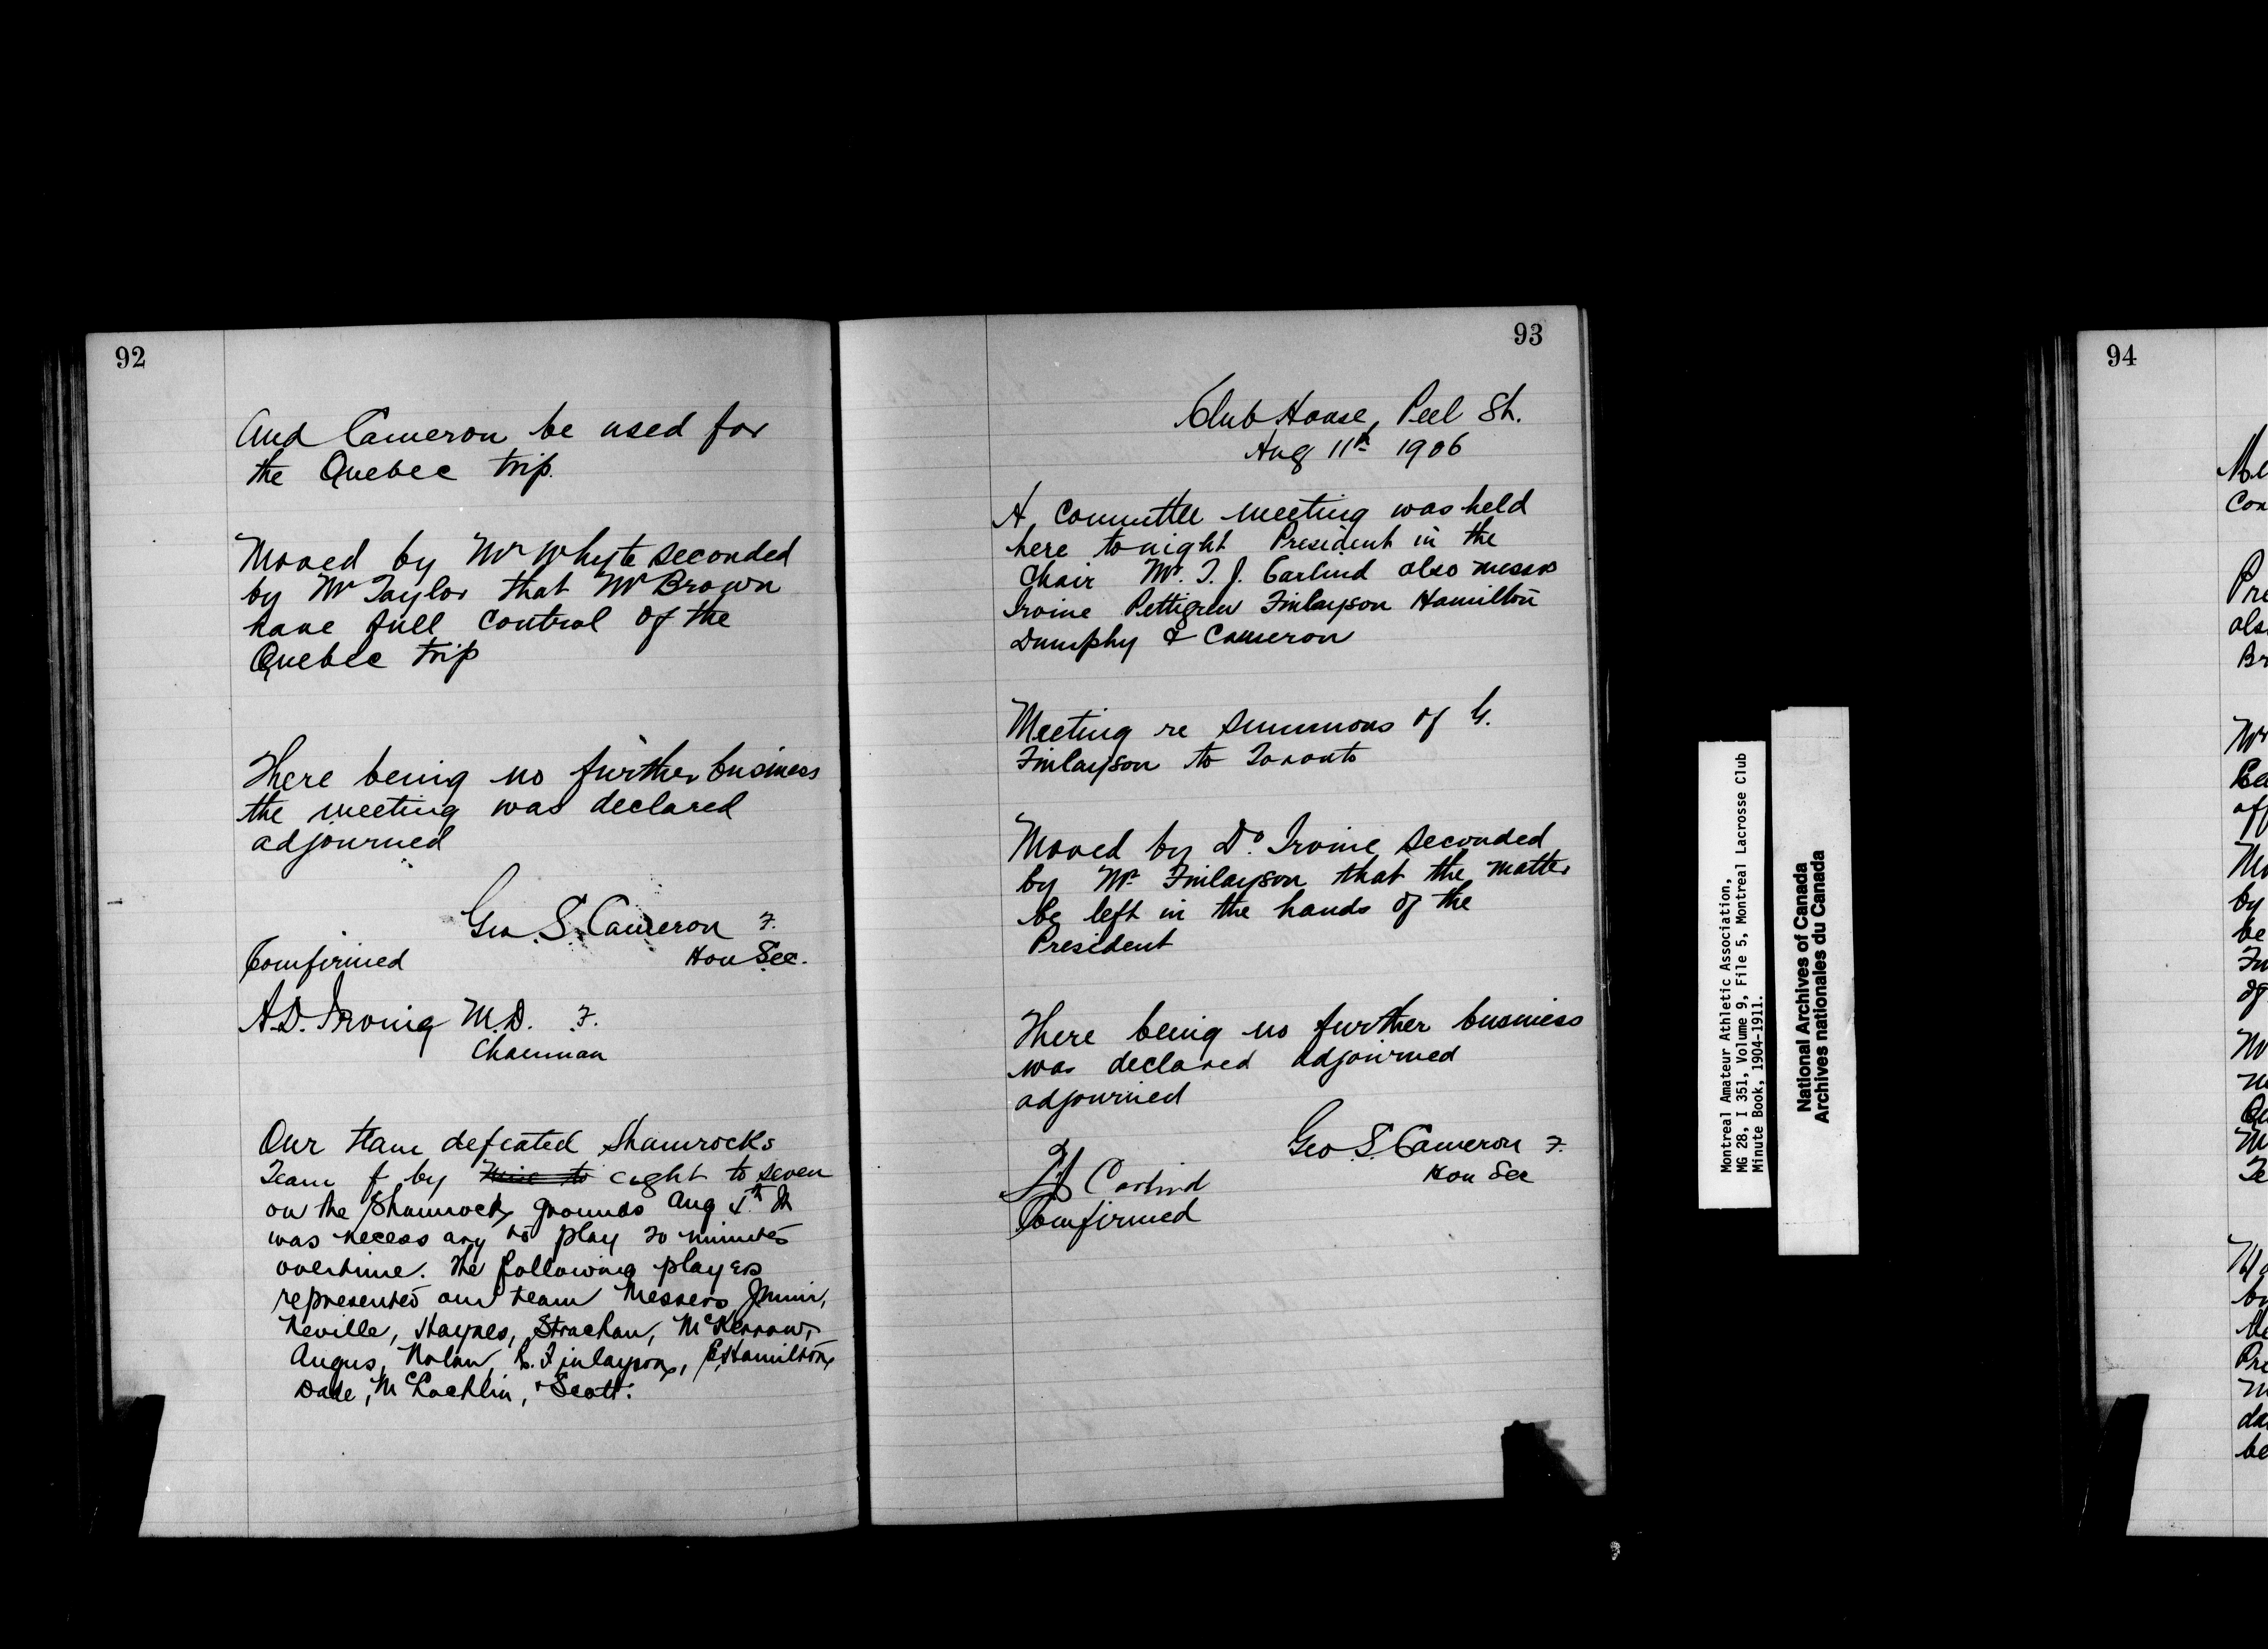 92
and Cameron be used for
the Quebec trip.
Moved by Mr Whyte seconded
by Mr Taylor that Mr Brown
have full control of the
Quebec trip
There being no further business
the meeting was declared
adjourned
Geo. S. Cameron
Hon Sec.
Comfirmed
A.D. Irving M.D.
Chairman
Our team defeated Shamrocks
Team by eight to seven
on the Shamrock grounds Aug It
was necessary to play 20 minutes
overtime. The following players
represented our team Messers Muir,
Neville, Haynes, Strachan, McKerrow,
Angus, Nolan, Finlayson, Hamilton,
Dade, McLachlin, + Scott.
93
Club House, Peel St.
Aug 11th 1906
A committee meeting was held
here tonight President in the
Chair Mr. T. J. Carlind also messrs
Irvine Pettigrew Finlayson Hamilton
Dumphy & Cameron
Meeting re summons of G.
Finlayson to Toronto
Moved by Dr Irvine seconded
by Mr Finlayson that the matter
be left in the hands of the
President
There being no further business
was declared adjourned
adjourned
Geo. S. Cameron
Hon Sec
Carlind
Comfirmed
Montreal Amateur Athletic Association,
MG 28, I 351, Volume 9, File 5, Montreal Lacrosse Club
Minute Book, 1904-1911.
National Archives of Canada
Archives nationales du Canada
94